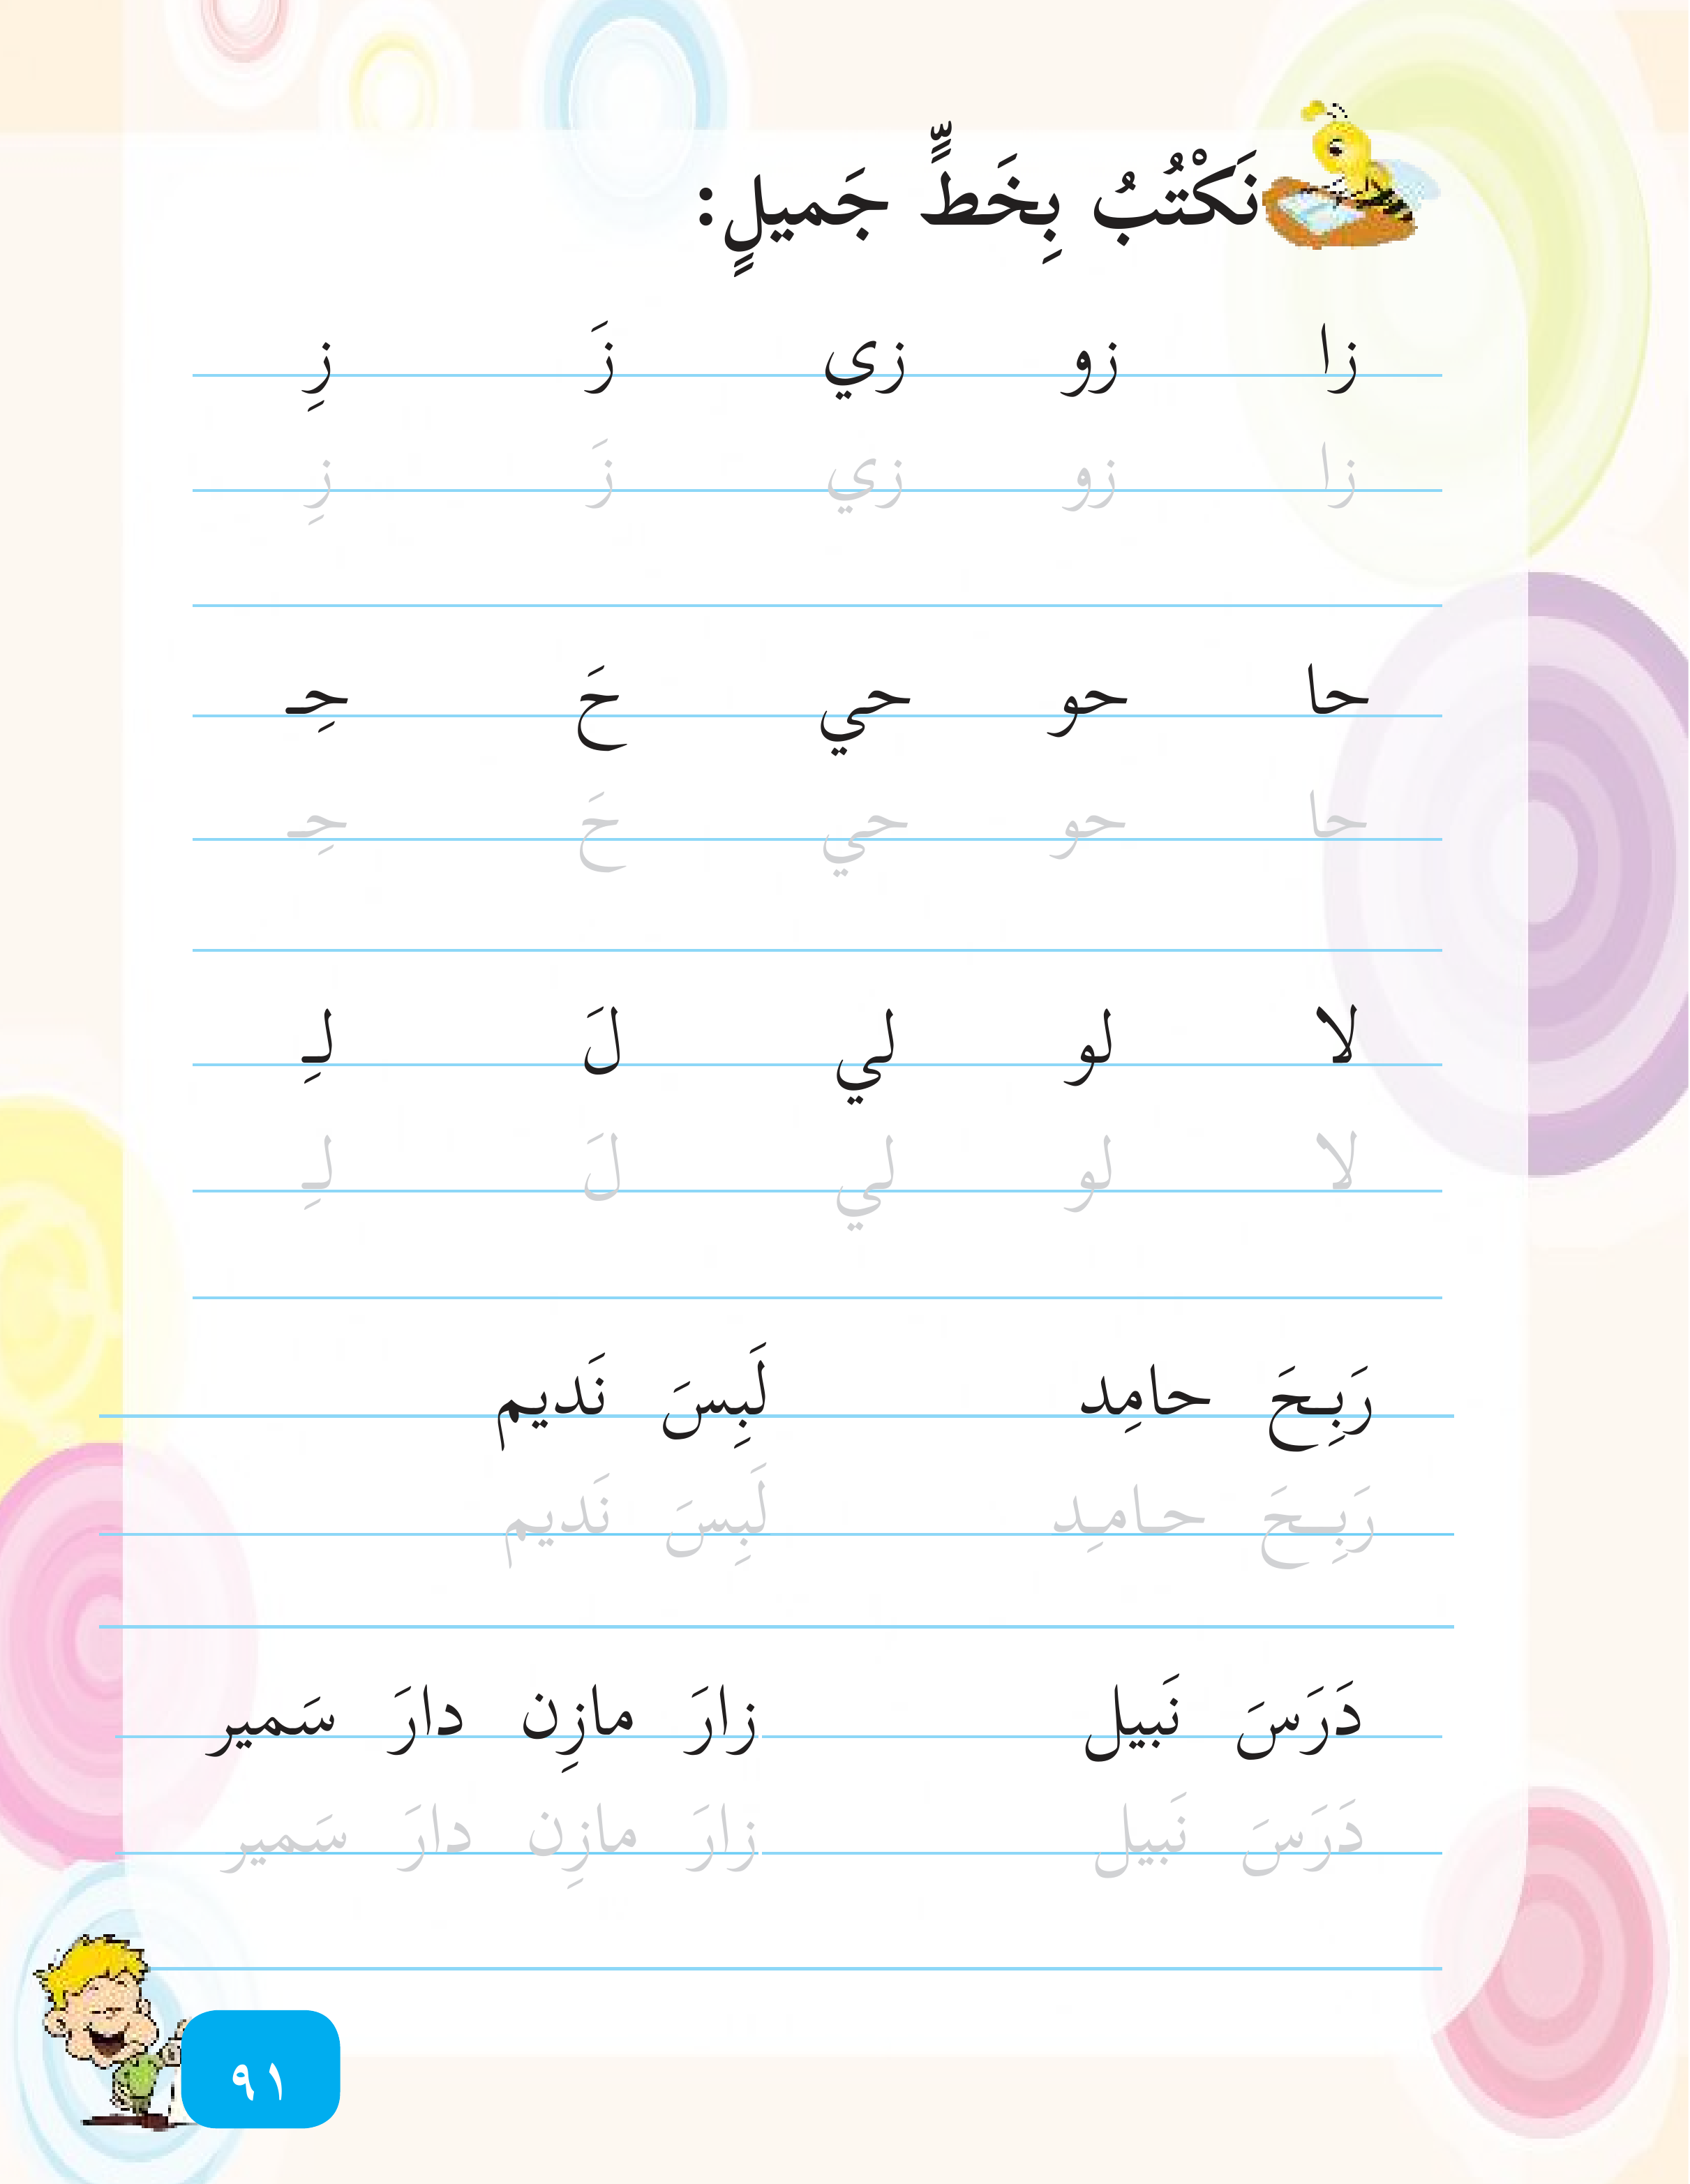 نَكْتُبُ بِخَطٍّ جَميلٍ:
زا زو زي زَ زِ
زا زو زي زَ زِ
حا حو حي حَ حِـ
حا حو حي حَ حِـ
لا لو لي لَ لِـ
لا لو لي لَ لِـ
رَبِـحَ حامِد لَبِسَ نَديم
رَبِــحَ حـامـِـد لَبِسَ نَديم
دَرَسَ نَبيل زارَ مازِن دارَ سَمير
دَرَسَ نَبيل زارَ مازِن دارَ سَمير
٩١